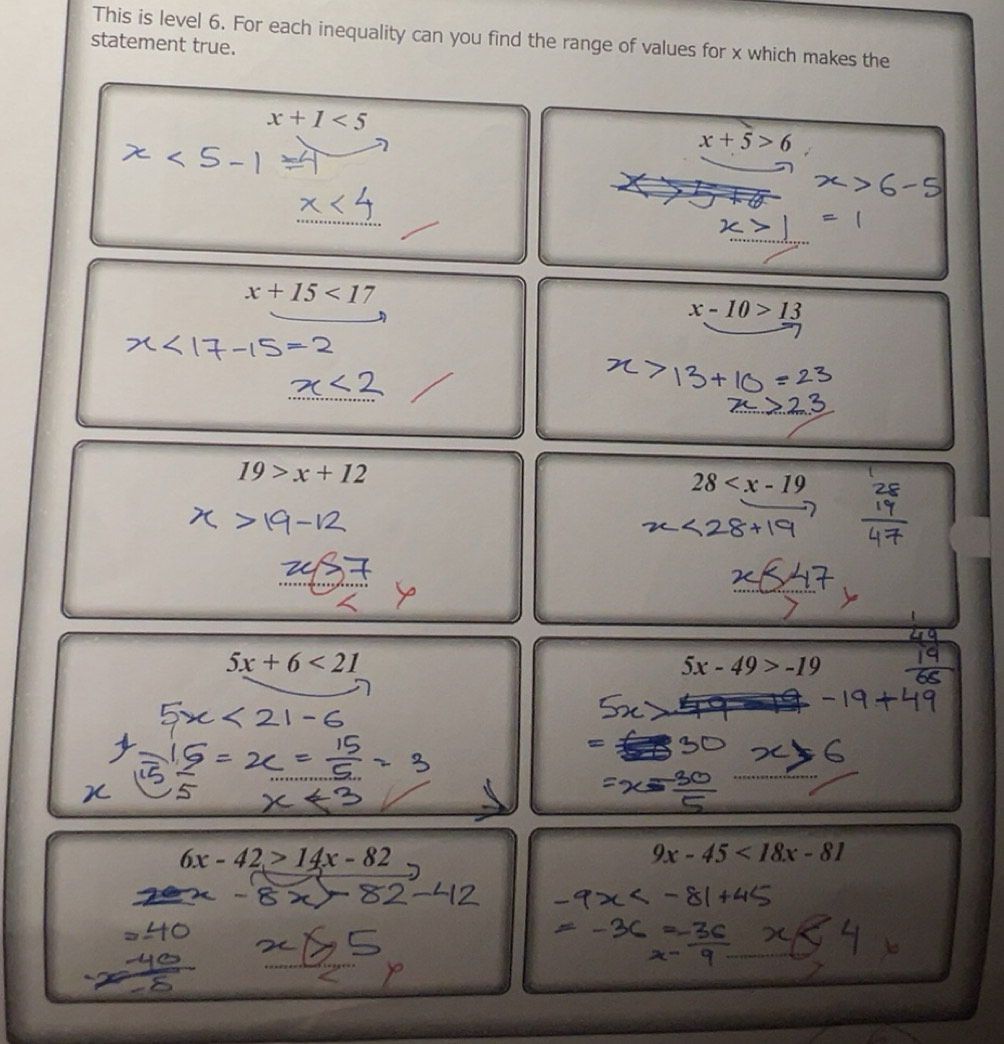 This is level 6. For each inequality can you find the range of values for x which makes the
statement true.
x + 1 < 5
x < 5 - 1 = 4
x < 4
x + 5 > 6
x > 6 - 5
= 1
x > 1
x + 15 < 17
x < 17 - 15 = 2
x < 2
x - 10 > 13
x > 13 + 10 = 23
x > 23
19 > x + 12
x > 19 - 12
x > 7
<
28 < x - 19
x < 28 + 19
28
19
47
x < 47
>
5x + 6 < 21
5x < 21 - 6
= x = 15/5 = 3
x < 3
5x - 49 > -19
49
19
5x > -19 + 49
= 30
= x = 30/5
x > 6
6x - 42 > 14x - 82
x - 8x > - 82 - 42
= -40
-40
-8
x > 5
<
9x - 45 < 18x - 81
-9x < -81 + 45
= -36 = -36/9
x < 4
>